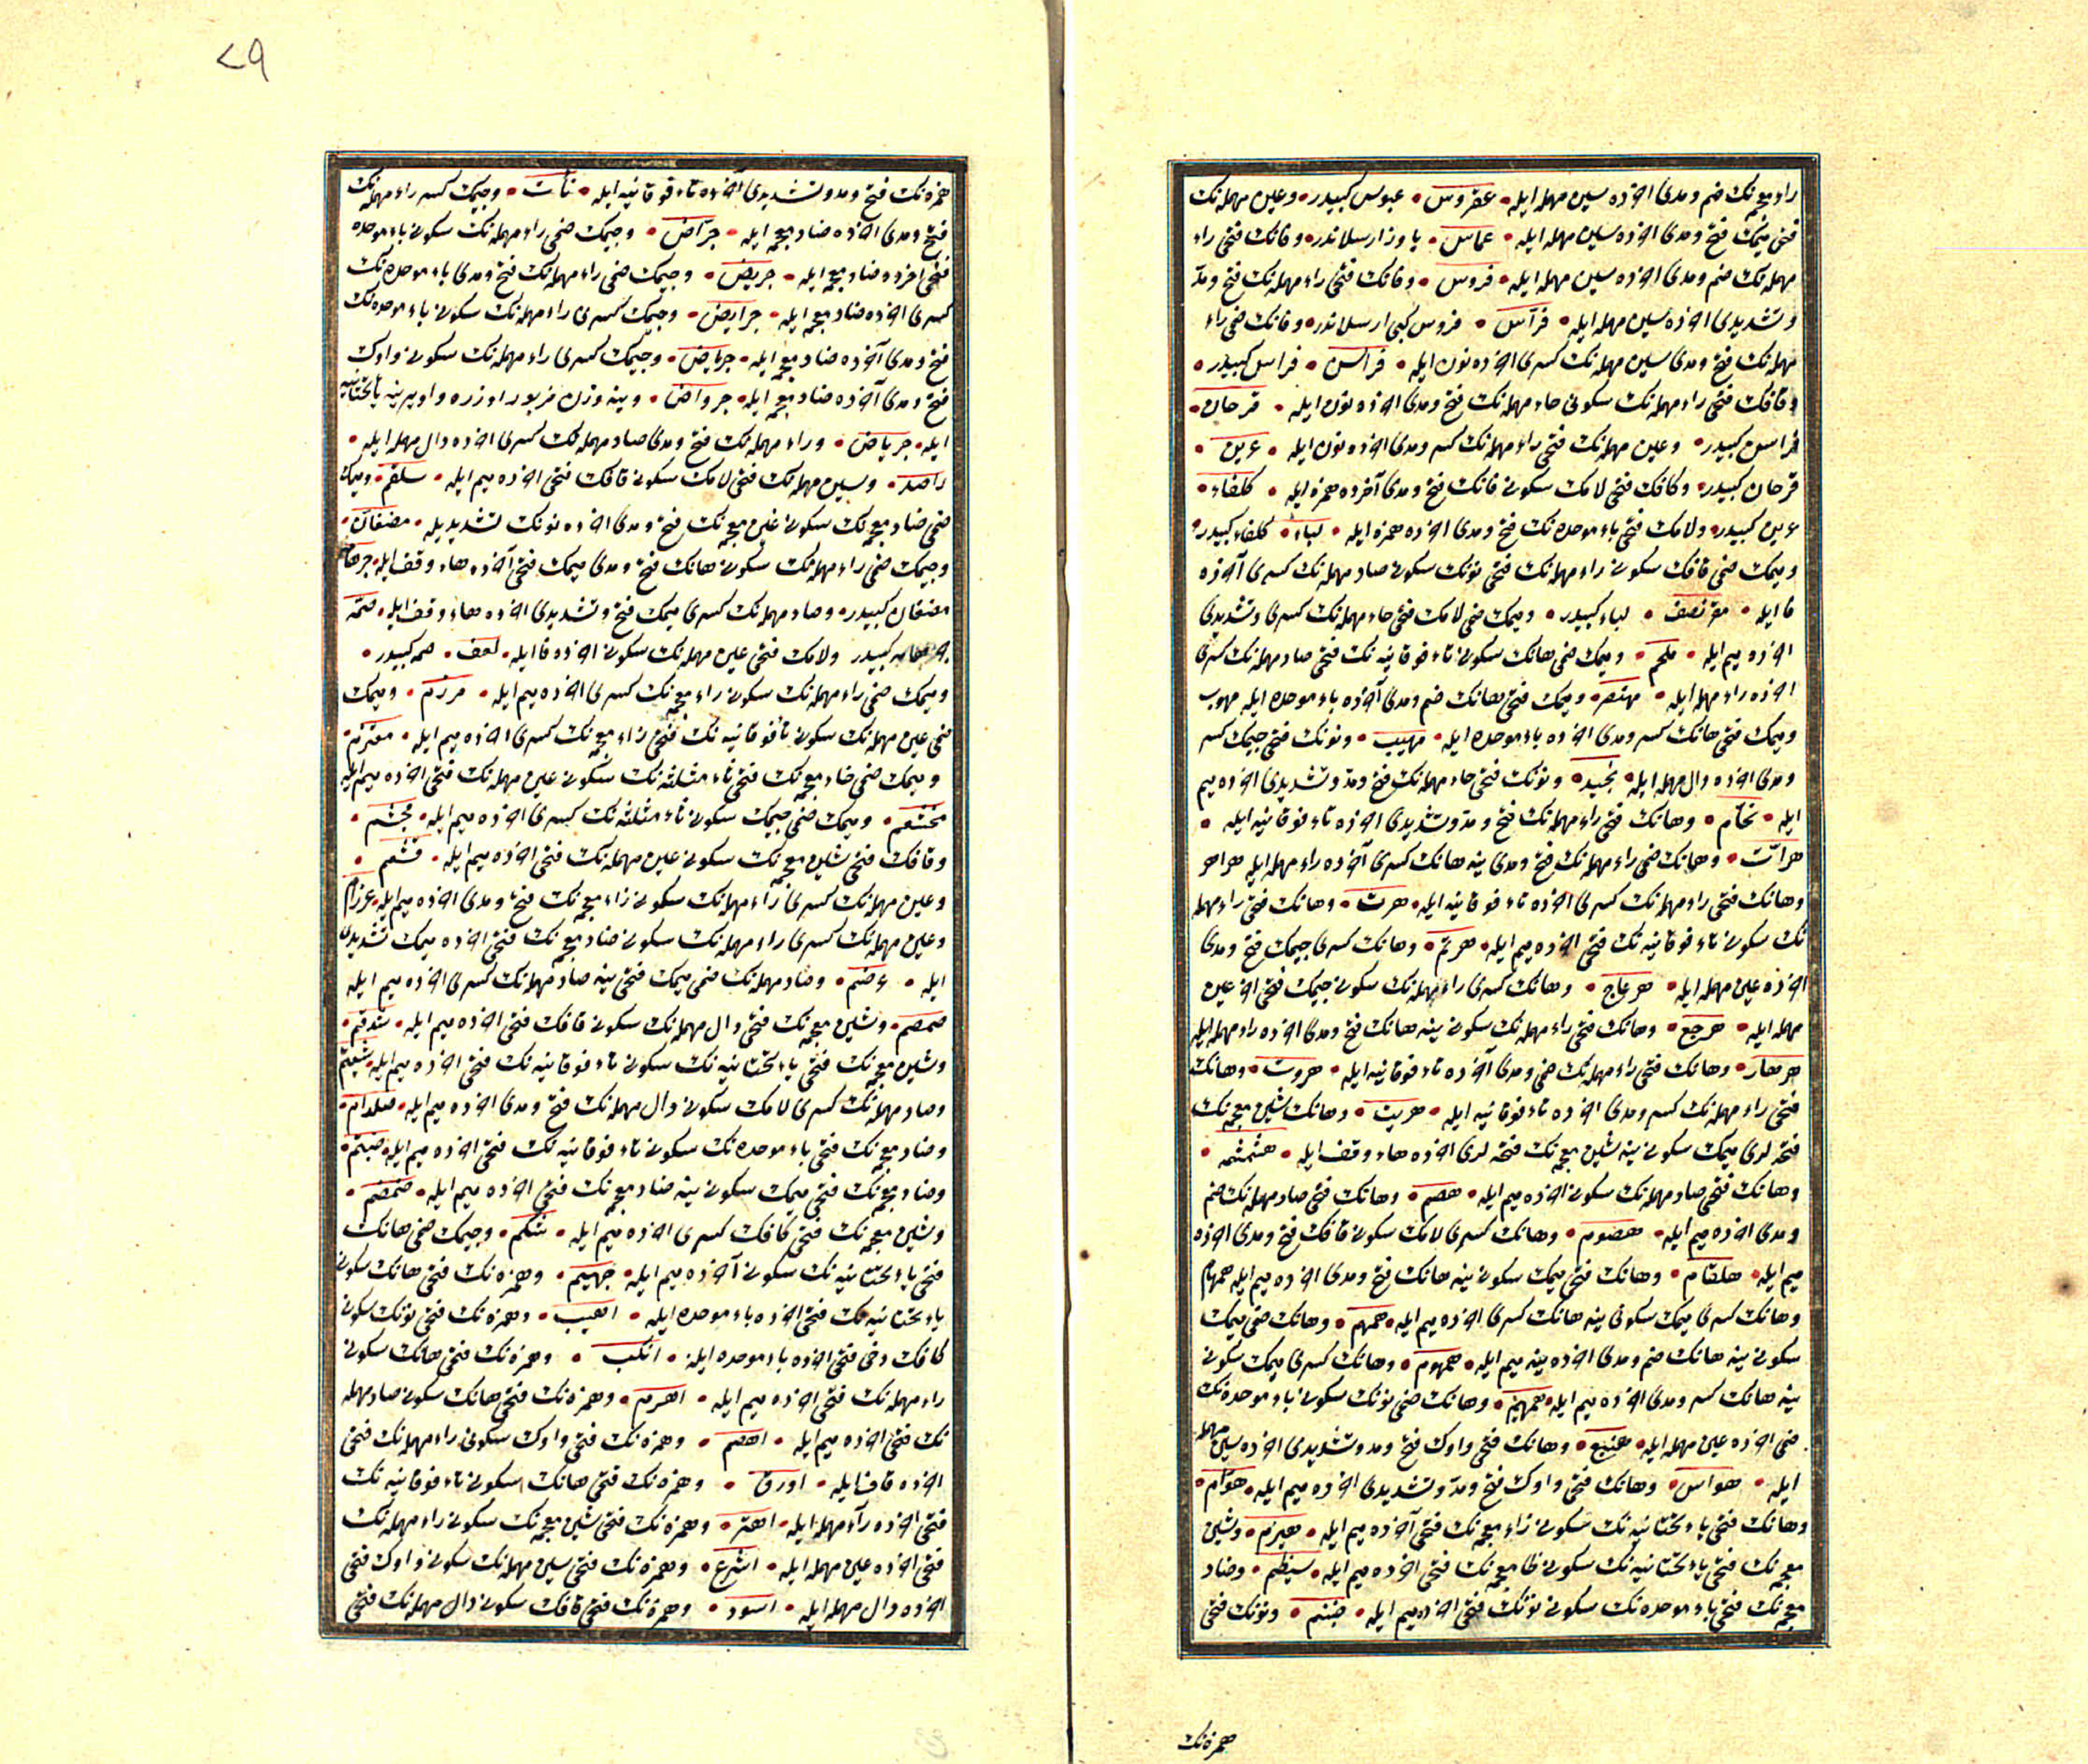 راء معجمه‌نك ضم و مدى آخرده سين مهمله ايله • عفروس • عبوس كبيدر • و عين مهمله‌نك
فتحى ميمك فتح و مدى آخرده سين مهمله ايله • عماس • ياوز ارسلاندر • و فانك فتحى راء
مهمله‌نك ضم و مدى آخرده سين مهمله ايله • فروس • و فانك فتحى راء مهمله‌نك فتح و مد
و تشديدى آخرده سين مهمله ايله • فراس • فروس كبى ارسلاندر • و فانك ضمى راء
مهمله‌نك فتح و مدى سين مهمله‌نك كسرى آخرده نون ايله • فرانس • فراس كبيدر •
و قافك فتحى راء مهمله‌نك سكونى حاء مهمله‌نك فتح و مدى آخرده نون ايله • قرحان •
فراسن كبيدر • و عين مهمله‌نك فتحى راء مهمله‌نك كسر و مدى آخرده نون ايله • عرين •
قرحان كبيدر • و كافك فتحى لامك سكونى فانك فتح و مدى آخرده همزه ايله • كلفاء •
عرين كبيدر • و لامك فتحى باء موحده‌نك فتح و مدى آخرده همزه ايله • لباء • كلفاء كبيدر •
و ميمك ضمى قافك سكونى راء مهمله‌نك فتحى نونك سكونى صاد مهمله‌نك كسرى آخرده
فا ايله • مقرنصف • لباء كبيدر • و ميمك ضمى لامك فتحى حاء مهمله‌نك كسرى و تشديدى
آخرده ميم ايله • ملحم • و ميمك ضمى هانك سكونى تاء فوقانيه‌نك فتحى صاد مهمله‌نك كسرى
آخرده راء مهمله ايله • مهتصر • و ميمك فتحى هانك ضم و مدى آخرده باء موحده ايله مهوب
و ميمك فتحى هانك كسر و مدى آخرده باء موحده ايله • مهيب • و نونك فتحى جيمك كسر
و مدى آخرده دال مهمله ايله • نجيد • و نونك فتحى حاء مهمله‌نك فتح و مد و تشديدى آخرده ميم
ايله • نحام • و هانك فتحى راء مهمله‌نك فتح و مد و تشديدى آخرده تاء فوقانيه ايله •
هرات • و هانك ضمى راء مهمله‌نك فتح و مدى ينه هانك كسرى آخرده راء مهمله ايله هراهر
و هانك فتحى راء مهمله‌نك كسرى آخرده تاء فوقانيه ايله • هرت • و هانك فتحى راء مهمله
نك سكونى تاء فوقانيه‌نك فتحى آخرده ميم ايله • هرتم • و هانك كسرى جيمك فتح و مدى
آخرده عين مهمله ايله • هرجاع • و هانك كسرى راء مهمله‌نك سكونى جيمك فتحى آخر عين
مهمله ايله • هرجع • و هانك فتحى راء مهمله‌نك سكونى ينه هانك فتح و مدى آخرده راء مهمله ايله
هرهار • و هانك فتحى راء مهمله‌نك ضمى و مدى آخرده تاء فوقانيه ايله • هروت • و هانك
فتحى راء مهمله‌نك كسر و مدى آخرده تاء فوقانيه ايله • هريت • و هانك شين معجمه‌نك
فتحه‌لرى ميمك سكونى ينه شين معجمه‌نك فتحه‌لرى آخرده هاء وقف ايله • هشمشمه •
و هانك فتحى صاد مهمله‌نك سكونى آخرده ميم ايله • هصم • و هانك فتحى صاد مهمله‌نك ضم
و مدى آخرده ميم ايله • هصوم • و هانك كسرى لامك سكونى قافك فتح و مدى آخرده
ميم ايله • هلقام • و هانك فتحى ميمك سكونى ينه هانك فتح و مدى آخرده ميم ايله همهام
و هانك كسرى ميمك سكونى ينه هانك كسرى آخرده ميم ايله • همهم • و هانك ضمى ميمك
سكونى ينه هانك ضم و مدى آخرده ينه ميم ايله • همهوم • و هانك كسرى ميمك سكونى
ينه هانك كسر و مدى آخرده ميم ايله • همهيم • و هانك ضمى نونك سكونى باء موحده‌نك
ضمى آخرده عين مهمله ايله • هنبع • و هانك فتحى واوك فتح و مد و تشديدى آخرده سين مهمله
ايله • هواس • و هانك فتحى واوك فتح و مد و تشديدى آخرده ميم ايله • هوام •
و هانك فتحى ياء تحتانيه‌نك سكونى زاء معجمه‌نك فتحى آخرده ميم ايله • هيزم • و شين
معجمه‌نك فتحى ياء تحتانيه‌نك سكونى ظا معجمه‌نك فتحى آخرده ميم ايله • شيظم • و ضاد
معجمه‌نك فتحى باء موحده‌نك سكونى نونك فتحى آخرده ميم ايله • ضبنم • و نونك فتحى
همزه‌نك
٧٩
همزه‌نك فتح و مد و تشديدى آخرده تاء فوقانيه ايله • نأت • و جيمك كسر راء مهمله‌نك
فتح و مدى آخرده ضاد معجمه ايله • جراض • و جيمك ضمى راء مهمله‌نك سكونى باء موحده
فتحى آخرده ضاد معجمه ايله • جربض • و جيمك ضمى راء مهمله‌نك فتح و مدى باء موحده‌نك
كسرى آخرده ضاد معجمه ايله • جرابض • و جيمك كسرى راء مهمله‌نك سكونى باء موحده‌نك
فتح و مدى آخرده ضاد معجمه ايله • جرباض • و جيمك كسرى راء مهمله‌نك سكونى واوك
فتح و مدى آخرده ضاد معجمه ايله • جرواض • و ينه وزن مزبور اوزره واو يرينه ياء تحتانيه
ايله • جرياض • و راء مهمله‌نك فتح و مدى صاد مهمله‌نك كسرى آخرده دال مهمله ايله •
راصد • و سين مهمله‌نك فتحى لامك سكونى قافك فتحى آخرده ميم ايله • سلقم • و ميمك
ضمى ضاد معجمه‌نك سكونى غين معجمه‌نك فتح و مدى آخرده نونك تشديديله • مضغان •
و جيمك ضمى راء مهمله‌نك سكونى هانك فتح و مدى ميمك فتحى آخرده هاء وقف ايله • جرهامه
مضغان كبيدر • و صاد مهمله‌نك كسرى ميمك فتح و تشديدى آخرده هاء وقف ايله • صمه
جرهامه كبيدر و لامك فتحى عين مهمله‌نك سكونى آخرده فا ايله • لعف • صمه كبيدر •
و ميمك ضمى راء مهمله‌نك سكونى زاء معجمه‌نك كسرى آخرده ميم ايله • مرزم • و ميمك
ضمى عين مهمله‌نك سكونى تا فوقانيه‌نك فتحى زاء معجمه‌نك كسرى آخرده ميم ايله • معتزم •
و ميمك ضمى خاء معجمه‌نك فتحى ثاء مثلثه‌نك سكونى عين مهمله‌نك فتحى آخرده ميم ايله
مخثعم • و ميمك ضمى جيمك سكونى ثاء مثلثه‌نك كسرى آخرده ميم ايله • مجثم •
و قافك فتحى شين معجمه‌نك سكونى عين مهمله‌نك فتحى آخرده ميم ايله • قشعم •
و عين مهمله‌نك كسرى راء مهمله‌نك سكونى زاء معجمه‌نك فتح و مدى آخرده ميم ايله • عرزام
و عين مهمله‌نك كسرى راء مهمله‌نك سكونى ضاد معجمه‌نك فتحى آخرده ميمك تشديدى
ايله • عرضم • و صاد مهمله‌نك ضمى ميمك فتحى ينه صاد مهمله‌نك كسرى آخرده ميم ايله
صمصم • و شين معجمه‌نك فتحى دال مهمله‌نك سكونى قافك فتحى آخرده ميم ايله • شدقم •
و شين معجمه‌نك فتحى ياء تحتانيه‌نك سكونى تاء فوقانيه‌نك فتحى آخرده ميم ايله • شيتم
و صاد مهمله‌نك كسرى لامك سكونى دال مهمله‌نك فتح و مدى آخرده ميم ايله • صلدام •
و ضاد معجمه‌نك فتحى باء موحده‌نك سكونى تاء فوقانيه‌نك فتحى آخرده ميم ايله • ضبتم •
و ضاد معجمه‌نك فتحى ميمك سكونى ينه ضاد معجمه‌نك فتحى آخرده ميم ايله • ضمضم •
و شين معجمه‌نك فتحى كافك كسرى آخرده ميم ايله • شكم • و جيمك ضمى هانك
فتحى ياء تحتانيه‌نك سكونى آخرده ميم ايله • جهيم • و همزه‌نك فتحى هانك سكونى
ياء تحتانيه‌نك فتحى آخرده باء موحده ايله • اهيب • و همزه‌نك فتحى نونك سكونى
كافك دخى فتحى آخرده باء موحده ايله • انكب • و همزه‌نك فتحى هانك سكونى
راء مهمله‌نك فتحى آخرده ميم ايله • اهرم • و همزه‌نك فتحى هانك سكونى صاد مهمله
نك فتحى آخرده ميم ايله • اهصم • و همزه‌نك فتحى واوك سكونى راء مهمله‌نك فتحى
آخرده قاف ايله • اورق • و همزه‌نك فتحى هانك سكونى تاء فوقانيه‌نك
فتحى آخرده راء مهمله ايله • اهتر • و همزه‌نك فتحى شين معجمه‌نك سكونى راء مهمله‌نك
فتحى آخرده عين مهمله ايله • اشرع • و همزه‌نك فتحى سين مهمله‌نك سكونى واوك فتحى
آخرده دال مهمله ايله • اسود • و همزه‌نك فتحى قافك سكونى دال مهمله‌نك فتحى